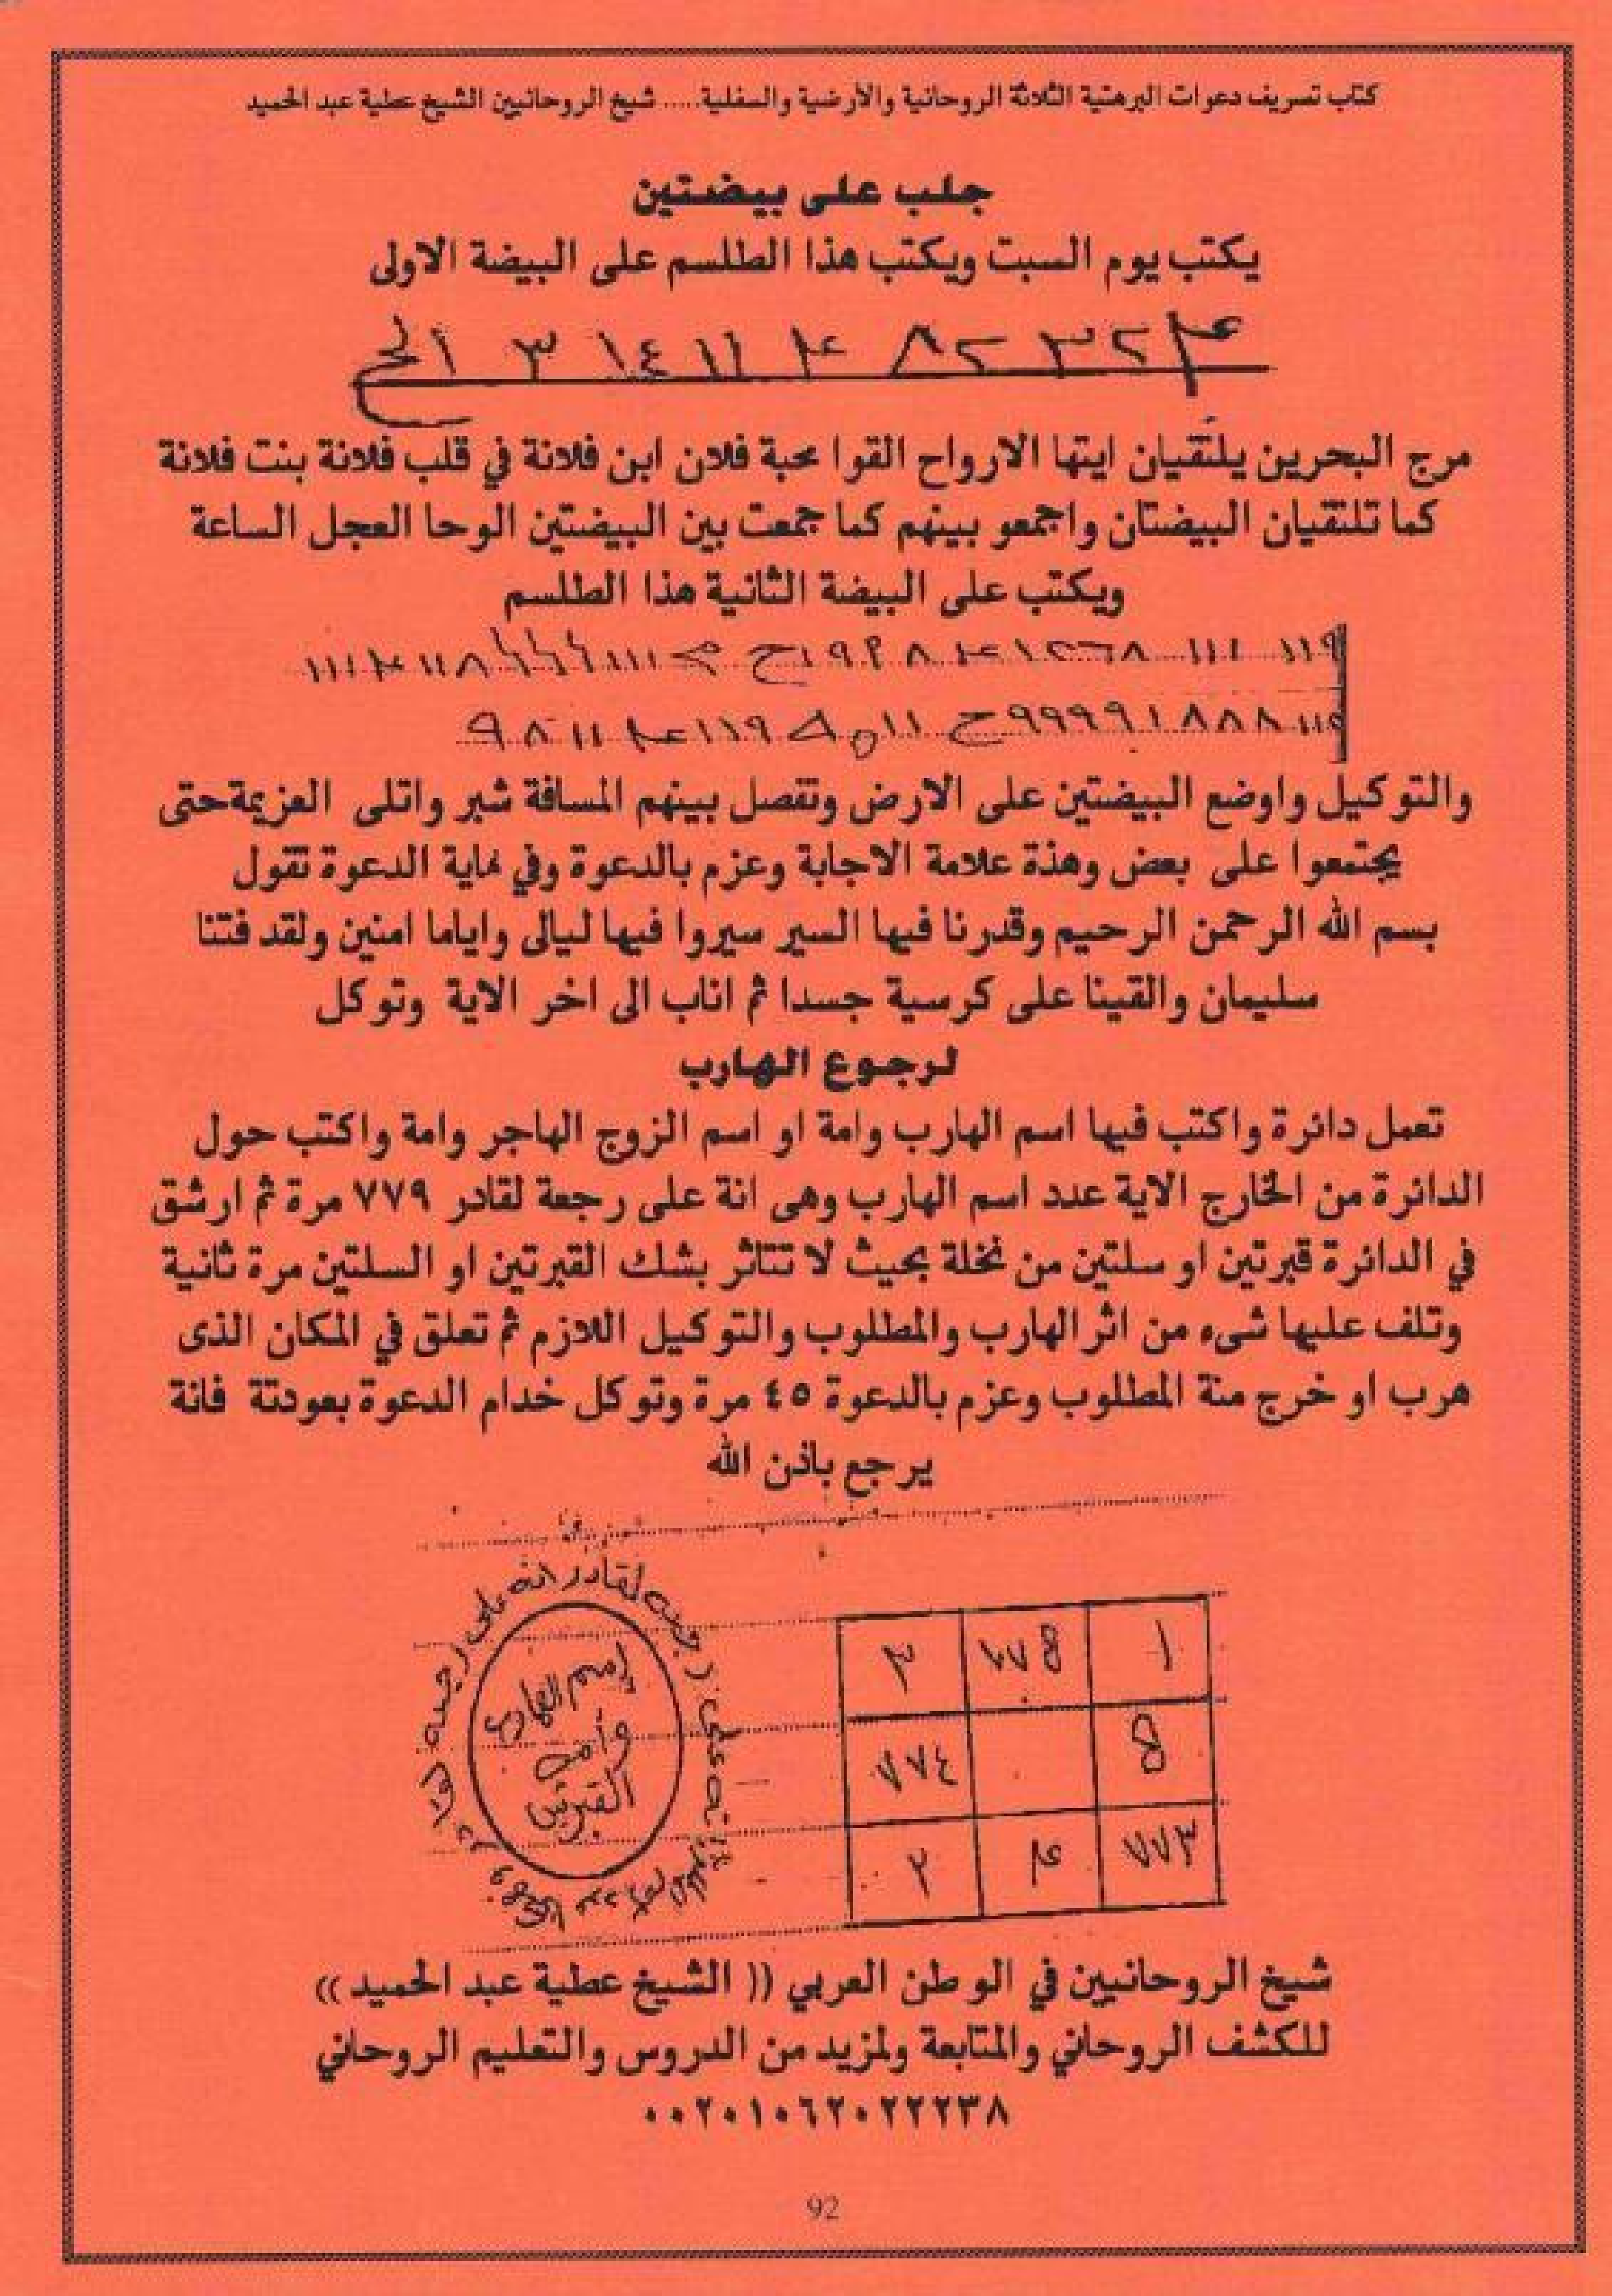 كتاب تصريف دعوات البرهتية الثلاثة الروحانية والأرضية والسفلية..... شيخ الروحانيين الشيخ عطية عبد الحميد
جلب على بيضتين
يكتب يوم السبت ويكتب هذا الطلسم على البيضة الاولى
مرج البحرين يلتقيان ايتها الارواح القوا محبة فلان ابن فلانة في قلب فلانة بنت فلانة
كما تلتقيان البيضتان واجمعو بينهم كما جمعت بين البيضتين الوحا العجل الساعة
ويكتب على البيضة الثانية هذا الطلسم
والتوكيل واوضع البيضتين على الارض وتفصل بينهم المسافة شبر واتلى العزيمةحتى
يجتمعوا على بعض وهذة علامة الاجابة وعزم بالدعوة وفي نماية الدعوة تقول
بسم الله الرحمن الرحيم وقدرنا فيها السير سيروا فيها ليالى واياما امنين ولقد فتنا
سليمان والقينا على كرسية جسدا ثم اناب الى اخر الاية وتوكل
لرجوع الهارب
تعمل دائرة واكتب فيها اسم الهارب وامة او اسم الزوج الهاجر وامة واكتب حول
الدائرة من الخارج الاية عدد اسم الهارب وهى انة على رجعة لقادر ٧٧٩ مرة ثم ارشق
في الدائرة قبرتين او سلتين من نخلة بحيث لا تتاثر بشك القبرتين او السلتين مرة ثانية
وتلف عليها شىء من اثر الهارب والمطلوب والتوكيل اللازم ثم تعلق في المكان الذى
هرب او خرج منة المطلوب وعزم بالدعوة ٤٥ مرة وتوكل خدام الدعوة بعودتة فانة
يرجع باذن الله
اسم الهارب
وامه
القبرتين
١
٧٧٤
٧٧٣
٢
شيخ الروحانيين في الوطن العربي (( الشيخ عطية عبد الحميد ))
للكشف الروحاني والمتابعة ولمزيد من الدروس والتعليم الروحاني
٠٠٢٠١٠٦٢٠٢٢٢٣٨
92